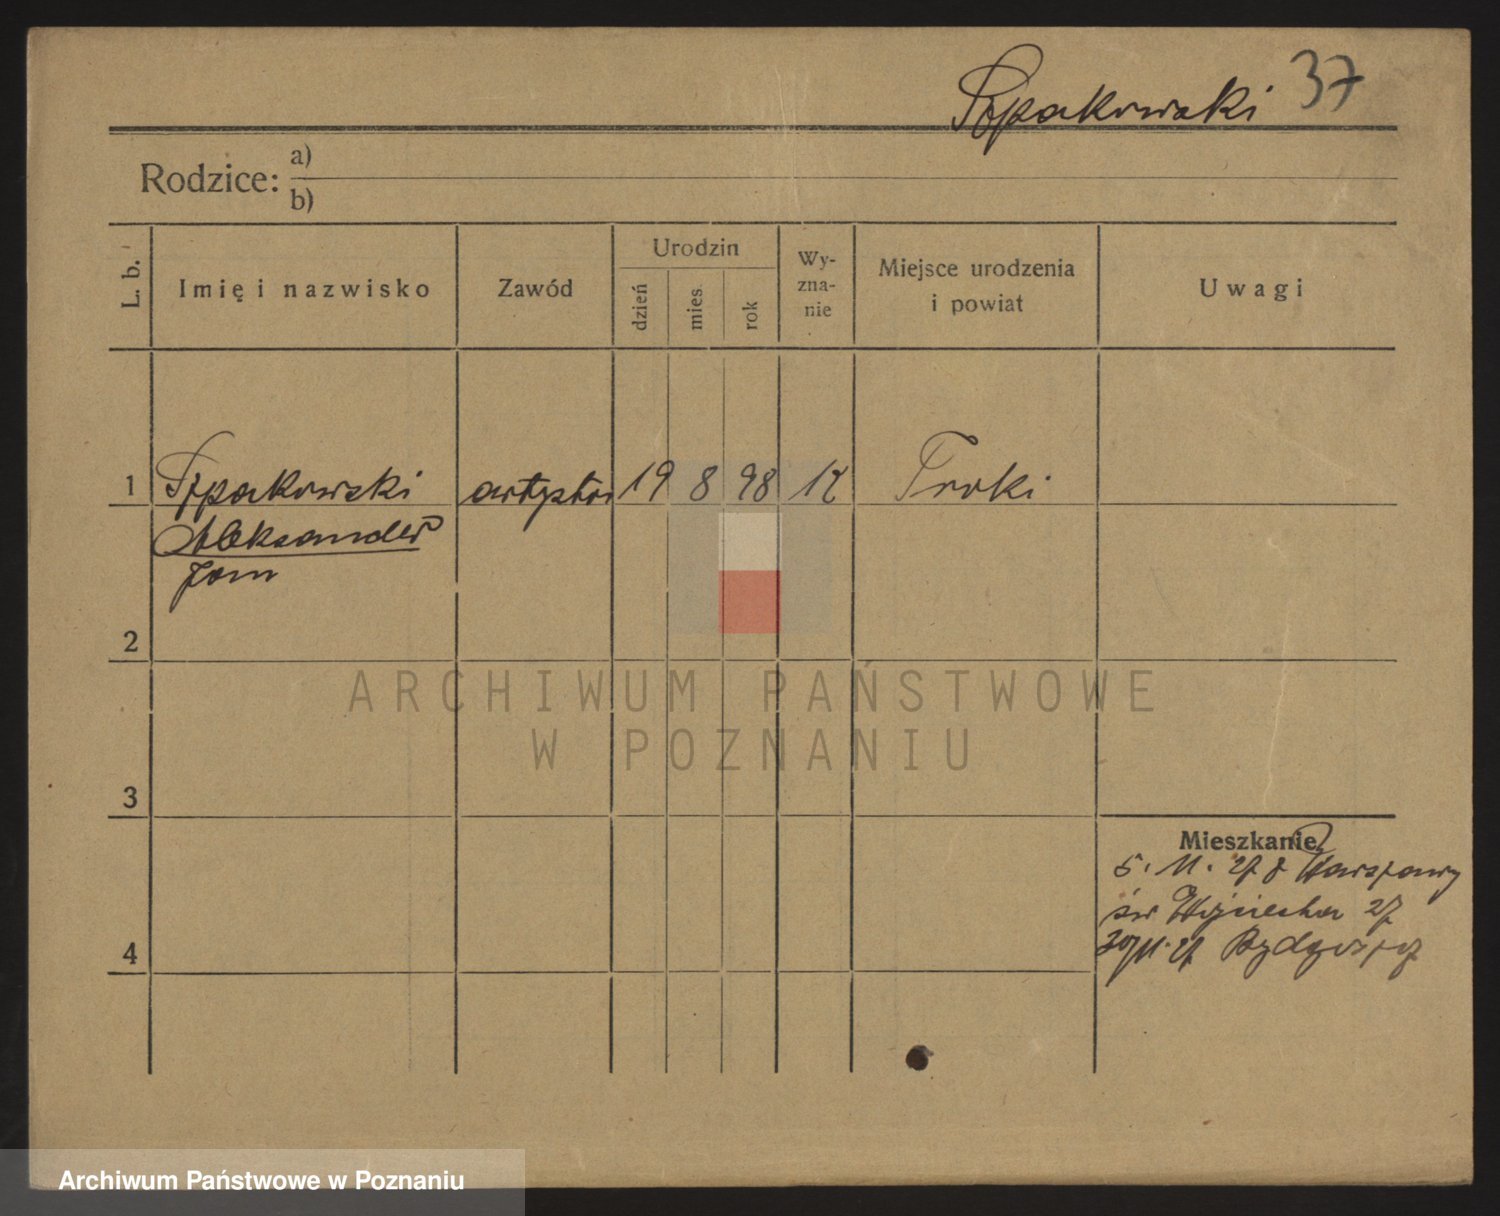 Szpakowski 37
Rodzice: a)
b)
L. b. Imię i nazwisko Zawód Urodzin dzień mies. rok Wy-zna-nie Miejsce urodzenia i powiat Uwagi
1 Szpakowski artysta 19 8 98 K Troki
Aleksander
Jan
2
ARCHIWUM PAŃSTWOWE
W POZNANIU
3
Mieszkanie
5. 11. 27 z Warszawy
św Wojciecha 27
30/11. 27 Bydgoszcz
4
Archiwum Państwowe w Poznaniu